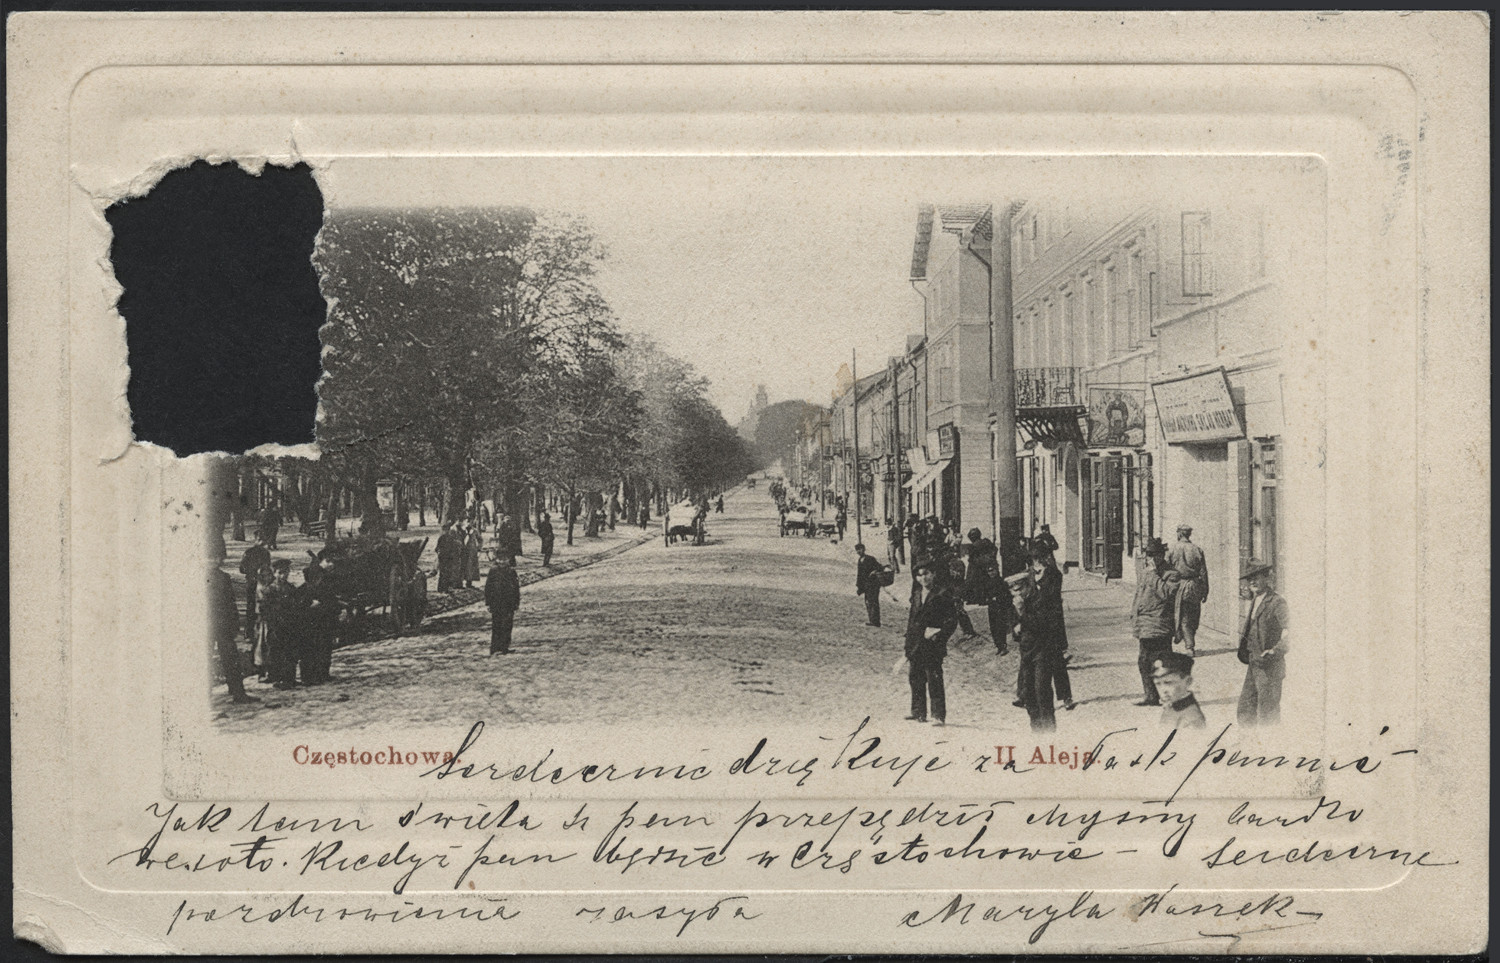 Częstochowa. II Aleja.
Serdecznie dziękuje za łask pamięć –
Jak tam święta pan przepędził myśmy bardzo
wesoło. Kiedyż pan będzie w Częstochowie – Serdeczne
pozdrowienia zasyła Maryla